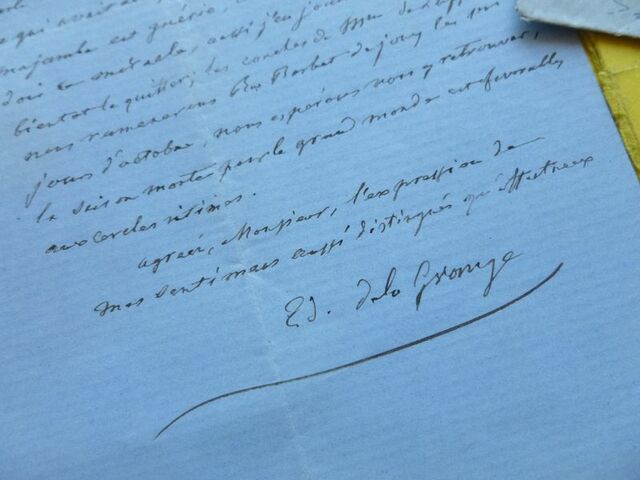 qui
ma jambe est guérie,
dois ce miracle, aussi j'en jou
bientot le quitter; les couches de Mme de
nous rameneront
jours d'octobre, nous espérons vous y retrouver,
la saison morte pour le grand monde est favorable
aux cercles intimes.
agréez, Monsieur, l'expression de
mes sentimens aussi distingués qu'affectueux
Ed. de la Grange